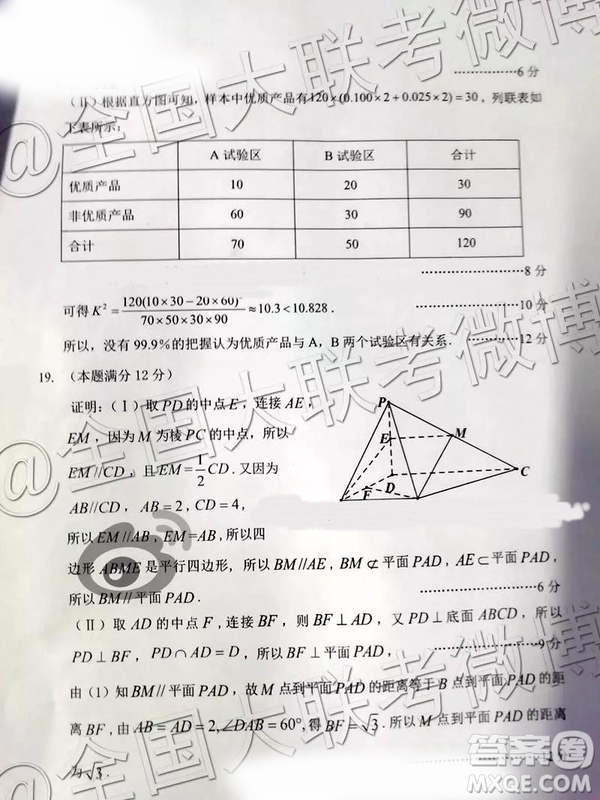 @全国大联考微博
6 分
(II) 根据直方图可知，样本中优质产品有120×(0.100×2+0.025×2)=30，列联表如
下表所示：
A 试验区 B 试验区 合计
优质产品 10 20 30
非优质产品 60 30 90
合计 70 50 120
8 分
可得 K² = 120(10×30−20×60)² / 70×50×30×90 ≈10.3<10.828．
10 分
所以，没有 99.9% 的把握认为优质产品与 A，B 两个试验区有关系．
12 分
19. （本题满分 12 分）
证明：(Ⅰ) 取 PD 的中点 E，连接 AE，
EM，因为 M 为棱 PC 的中点，所以
EM//CD，且 EM=1/2 CD．又因为
AB//CD，AB=2，CD=4，
所以 EM//AB，EM=AB，所以四
边形 ABME 是平行四边形，所以 BM//AE，BM⊄平面 PAD，AE⊂平面 PAD，
所以 BM//平面 PAD．
6 分
P
E
M
D
C
F
(II) 取 AD 的中点 F，连接 BF，则 BF⊥AD，又 PD⊥底面 ABCD，所以
PD⊥BF，PD∩AD=D，所以 BF⊥平面 PAD．
9分
由（1）知 BM//平面 PAD，故 M 点到平面 PAD 的距离等于 B 点到平面 PAD 的距
离 BF，由 AB=AD=2,∠DAB=60°,得 BF=√3．所以 M 点到平面 PAD 的距离
为√3．
@全国大联考微博
@全国大联考微博
答案圈
MXQE.COM